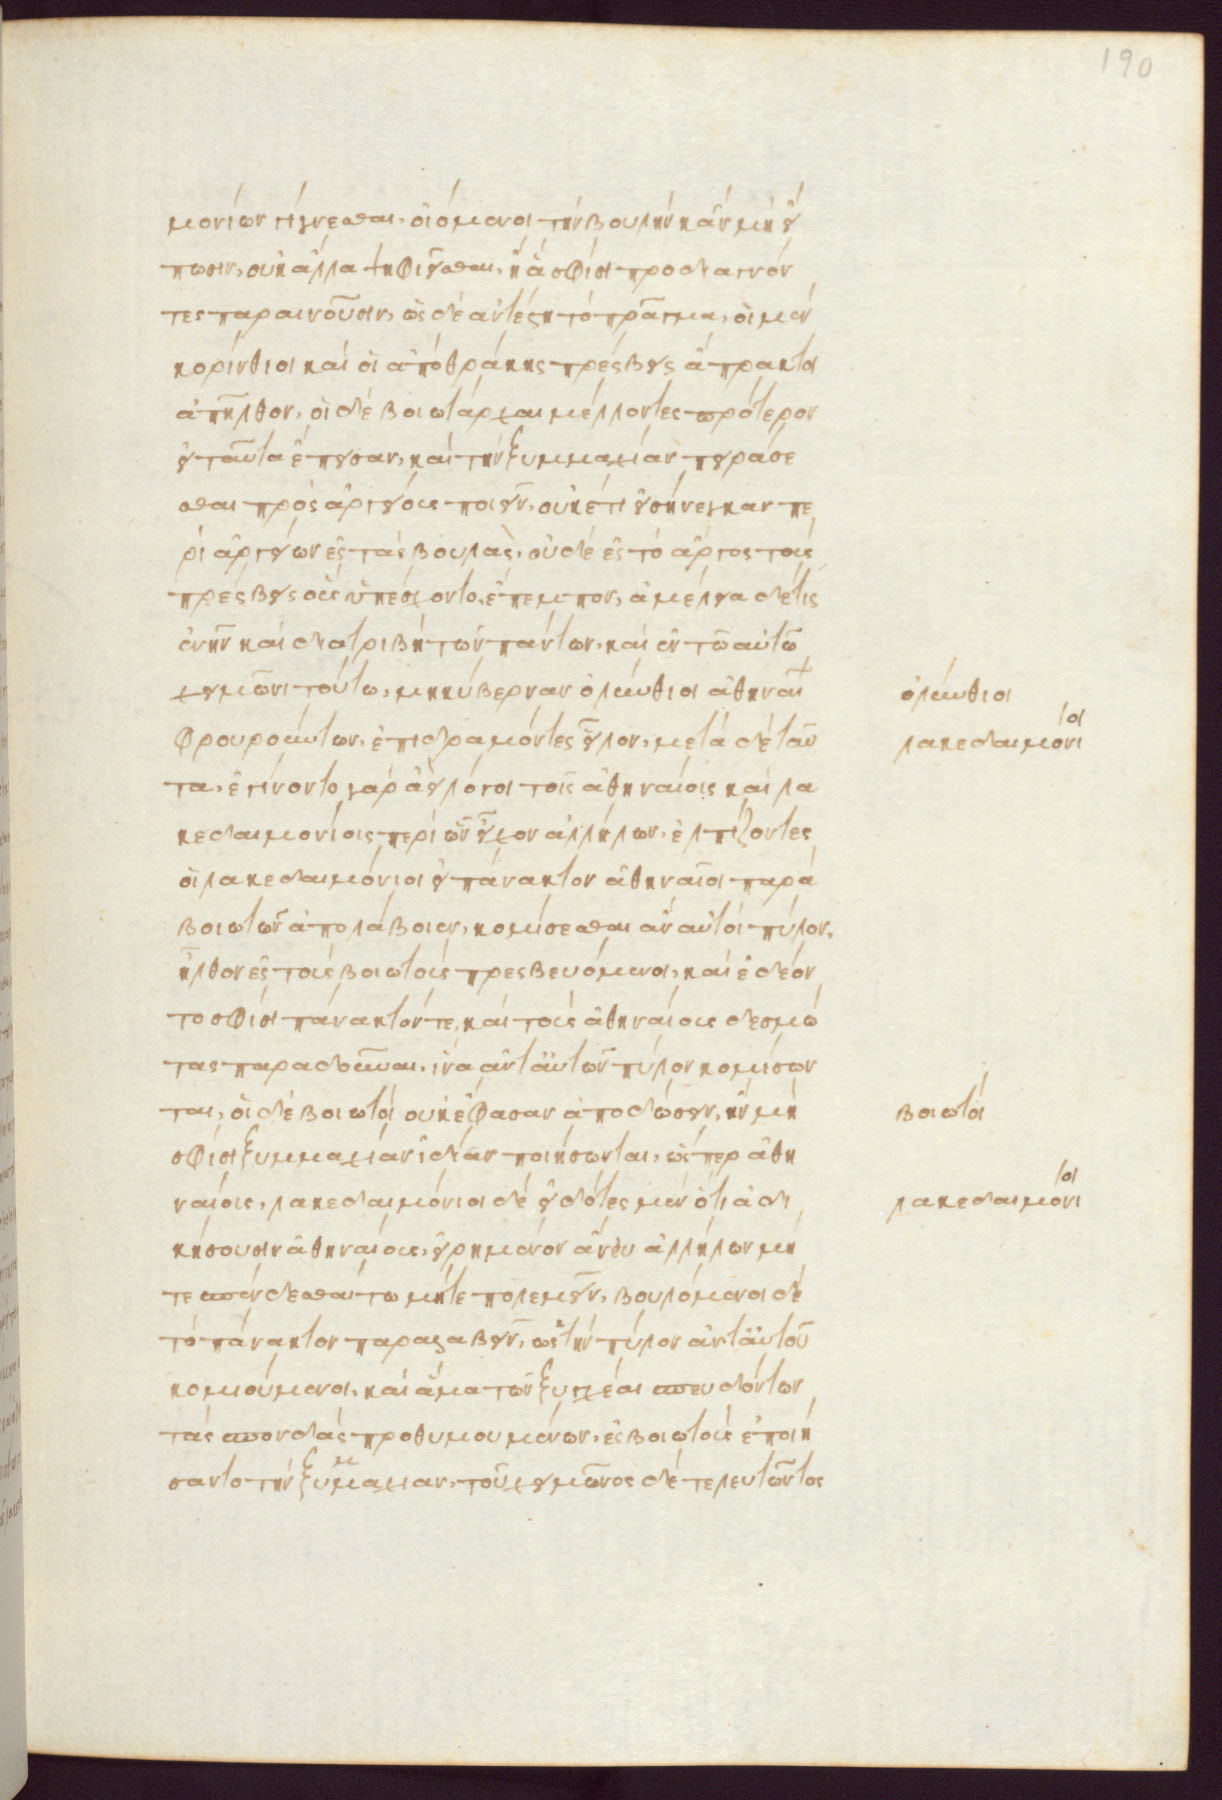 190
μονίων γίγνεσθαι, οἰόμενοι τὴν βουλὴν κἂν μὴ εἴ
πωσιν, οὐκ ἄλλα ψηφιεῖσθαι, ἢ ἃ σφίσι προδιαγνόν
τες παραινοῦσιν, ὡς δὲ ἀντέστη τὸ πρᾶγμα, οἱ μὲν
κορίνθιοι καὶ οἱ ἀπὸ θράκης πρέσβεις ἄπρακτοι
ἀπῆλθον, οἱ δὲ βοιωτάρχαι μέλλοντες πρότερον
εἰ ταῦτα ἔπεισαν, καὶ τὴν ξυμμαχίαν πειράσε
σθαι πρὸς ἀργείους ποιεῖν, οὐκέτι εἰσήνεγκαν πε
ρὶ ἀργείων ἐς τὰς βουλὰς, οὐδὲ ἐς τὸ ἄργος τοὺς
πρέσβεις οὓς ὑπέσχοντο, ἔπεμπον, ἀμέλεια δέ τις
ἐνῆν καὶ διατριβὴ τῶν πάντων, καὶ ἐν τῶ αὐτῶ
χειμῶνι τούτω, μηκύβερναν ὀλύνθιοι ἀθηναί
φρουρούντων, ἐπιδραμόντες εἷλον, μετὰ δὲ ταῦ
τα, ἐγίνοντο γὰρ ἀεὶ λόγοι τοῖς ἀθηναίοις καὶ λα
κεδαιμονίοις περὶ ὧν εἶχον ἀλλήλων, ἐλπίζοντες
οἱ λακεδαιμόνιοι εἰ πάνακτον ἀθηναῖοι παρὰ
βοιωτῶν ἀπολάβοιεν, κομίσεσθαι ἂν αὐτοὶ πύλον,
ἦλθον ἐς τοὺς βοιωτοὺς πρεσβευόμενοι, καὶ ἐδέον
το σφίσι πάνακτόν τε, καὶ τοὺς ἀθηναίους δεσμώ
τας παραδοῦναι, ἵνα ἀντ᾽ αὐτῶν πύλον κομίσων
ται, οἱ δὲ βοιωτοὶ οὐκ ἔφασαν ἀποδώσειν, ἢν μὴ
σφίσι ξυμμαχίαν ἰδίαν ποιήσωνται, ὥσπερ ἀθη
ναίοις, λακεδαιμόνιοι δὲ εἰδότες μὲν ὅτι ἀδι
κήσουσιν ἀθηναίους, εἰρημένον ἄνευ ἀλλήλων μή
τε σπένδεσθαί τω μήτε πολεμεῖν, βουλόμενοι δὲ
τὸ πάνακτον παραλαβεῖν, ὡς τὴν πύλον ἀντ᾽ αὐτοῦ
κομιούμενοι, καὶ ἅμα τῶν ξυγχέαι σπευδόντων
τὰς σπονδὰς προθυμουμένων, ἐς βοιωτοὺς ἐποιή
σαντο τὴν ξυμμαχίαν, τοῦ χειμῶνος δὲ τελευτῶντος
ὀλύνθιοι
λακεδαιμόνιοι
βοιωτοί
λακεδαιμόνιοι